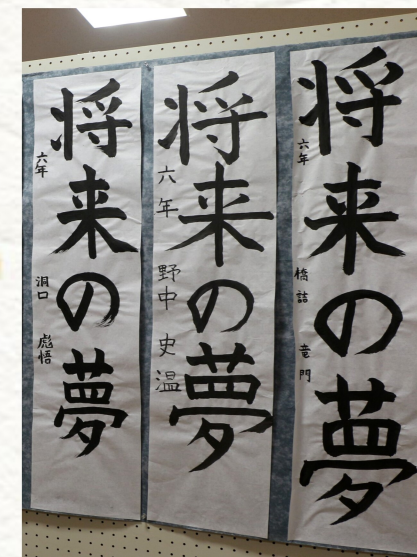 将来の夢
六年 橋詰 竜門
将来の夢
六年 野中 史温
将来の夢
六年 洞口 彪悟